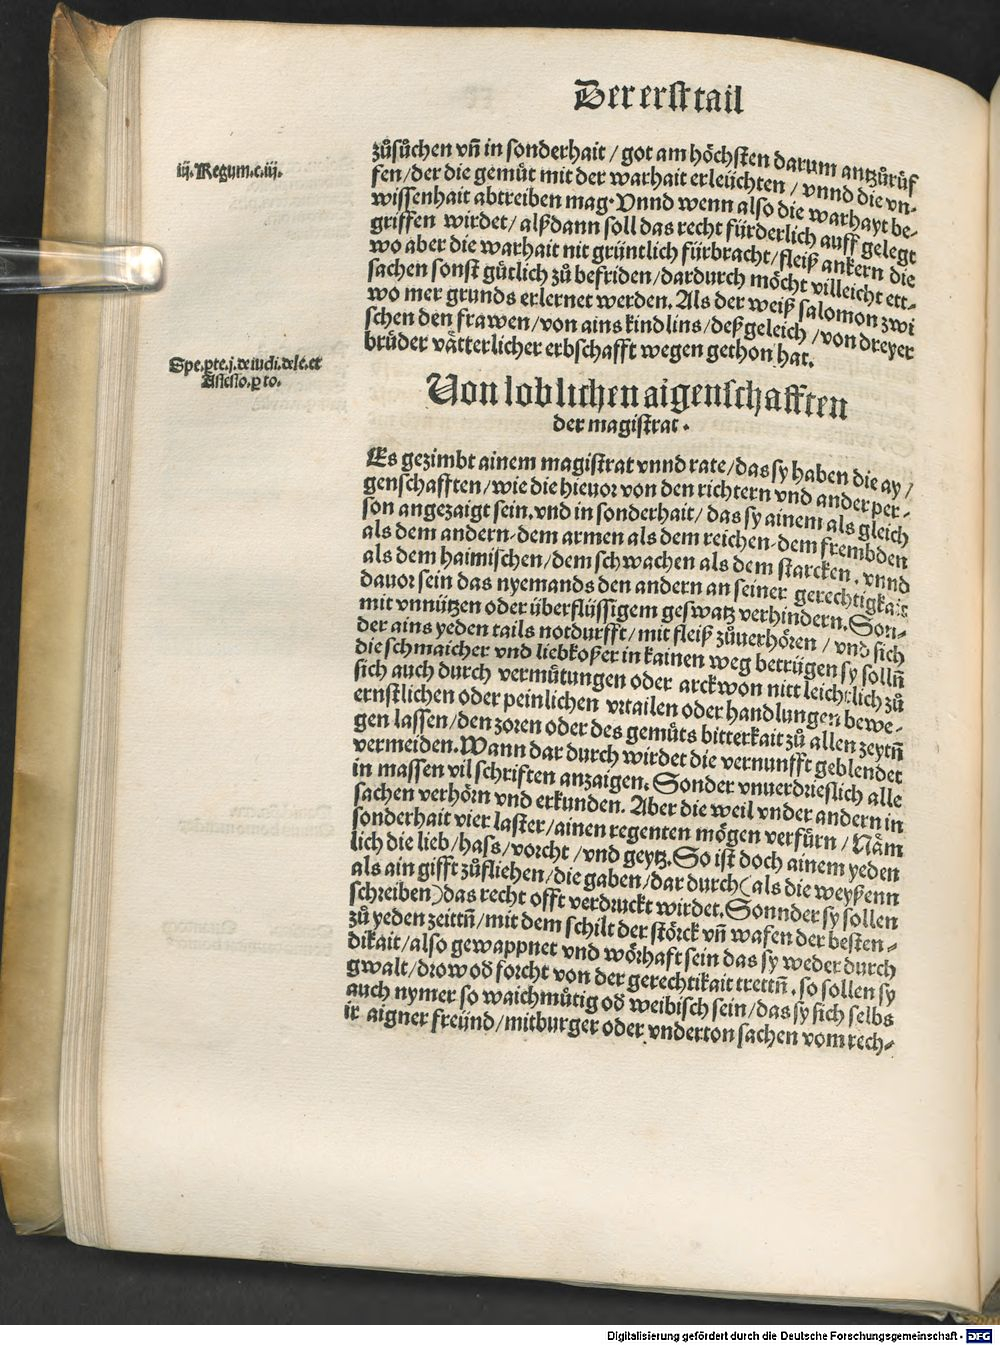 Der erst tail
zůsůchen vñ in sonderhait / got am höchsten darum antzůrůf
fen / der die gemůt mit der warhait erleüchten / vnnd die vn-
wissenhait abtreiben mag. Vnnd wenn also die warhayt be-
griffen wirdet / alßdann soll das recht fürderlich auff gelegt
wo aber die warhait nit grüntlich fürbracht / fleiß ankern die
sachen sonst gůtlich zů befriden / dardurch möcht villeicht ett-
wo mer grunds erlernet werden. Als der weiß salomon zwi
schen den frawen / von ains kindlins / deßgeleich / von dreyer
brůder vätterlicher erbschafft wegen gethon hat.
iij. Regum. c. iij.
Spe. pte. j. de iudi. dele. et
Assesso. p to.
Von loblichen aigenschafften
der magistrat.
Es gezimbt ainem magistrat vnnd rate / das sy haben die ay /
genschafften / wie die hieuor von den richtern vnd ander per-
son angezaigt sein. vnd in sonderhait / das sy ainem als gleich
als dem andern. dem armen als dem reichen. dem frembden
als dem haimischen / dem schwachen als dem starcken. vnnd
dauor sein das nyemands den andern an seiner gerechtigkait
mit vnnützen oder überflüssigem geswatz verhindern. Son-
der ains yeden tails notdurfft / mit fleiß zůuerhören / vnd sich
die schmaicher vnd liebkoßer in kainen weg betrügen sy solln̄
sich auch durch vermůtungen oder arckwon nitt leichtlich zů
ernstlichen oder peinlichen vrtailen oder handlungen bewe-
gen lassen / den zoren oder des gemůts bitterkait zů allen zeytn̄
vermeiden. Wann dar durch wirdet die vernunfft geblendet
in massen vil schriften anzaigen. Sonder vnuerdrieslich alle
sachen verhörn vnd erkunden. Aber die weil vnder andern in
sonderhait vier laster / ainen regenten mögen verfürn / Näm
lich die lieb / hass / vorcht / vnd geytz. So ist doch ainem yeden
als ain gifft zůfliehen / die gaben / dar durch (als die weyßenn
schreiben) das recht offt verdruckt wirdet. Sonnder sy sollen
zů yeden zeittn̄ / mit dem schilt der störck vn̄ wafen der besten-
dikait / also gewappnet vnd wörhaft sein das sy weder durch
gwalt / drow od̄ forcht von der gerechtikait trettn̄. so sollen sy
auch nymer so waichmůtig od̄ weibisch sein / das sy sich selbs
ir aigner freünd / mitburger oder vnderton sachen vom rech-
Digitalisierung gefördert durch die Deutsche Forschungsgemeinschaft - DFG